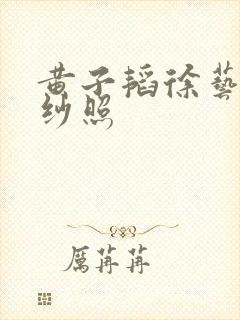 黄子韬徐藝
纱照
厲苒苒